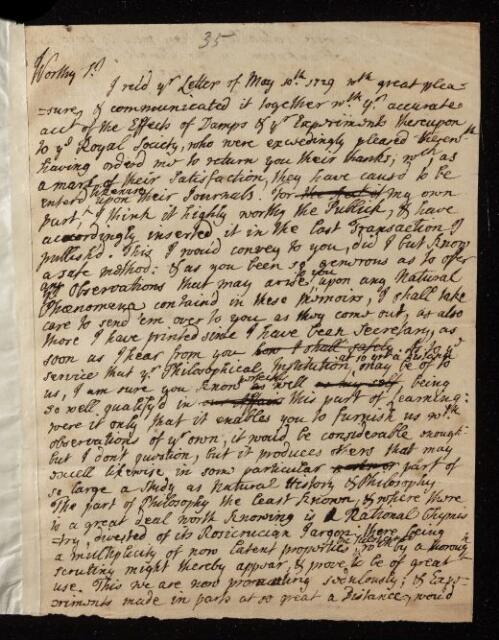 35
Worthy Sr.
I rec'd yr Letter of May 10.th 1729 wth great plea-
-sure, & communicated it together wth yr accurate
acct of the Effects of Damps & yr Experiments thereupon
to ye Royal Society, who were exceedingly pleased therewth
having order'd me to return you their thanks, wch, as
a mark of their Satisfaction, they have caus'd to be
enter'd upon their Journals. For my own
part, I think it highly worthy the Publick, & have
accordingly inserted it in the last Transaction I
publish'd. This I would convey to you, did I but know
a safe method: & as you been so generous as to offer
any Observations that may arise upon any Natural
Phænomena contain'd in these Memoirs, I shall take
care to send 'em over to you as they come out, as also
those I have printed since I have been Secretary, as
soon as I hear from you how I shall safely. As to ye
service that yr Philosophical Institution, at so gt a distance may be of to
us, I am sure you know as well as my self being
so well qualify'd in this part of Learning:
were it only that it enables you to furnish us wth
observations of yr own, it would be considerable enough
but I don't question, but it produces others that may
excell likewise in some particular part of
so large a study as Natural History & Philosophy
The part of Philosophy the least known, & where there
is a great deal worth knowing is a Rational Chymis
-try, divested of its Rosicrucian Jargon, there being
a multiplicity of now latent properties, wch by a thorough
scrutiny might thereby appear, & prove to be of great
use. This we are now promoting sedulously; & Exp-
-eriments made in parts at so great a Distance, would